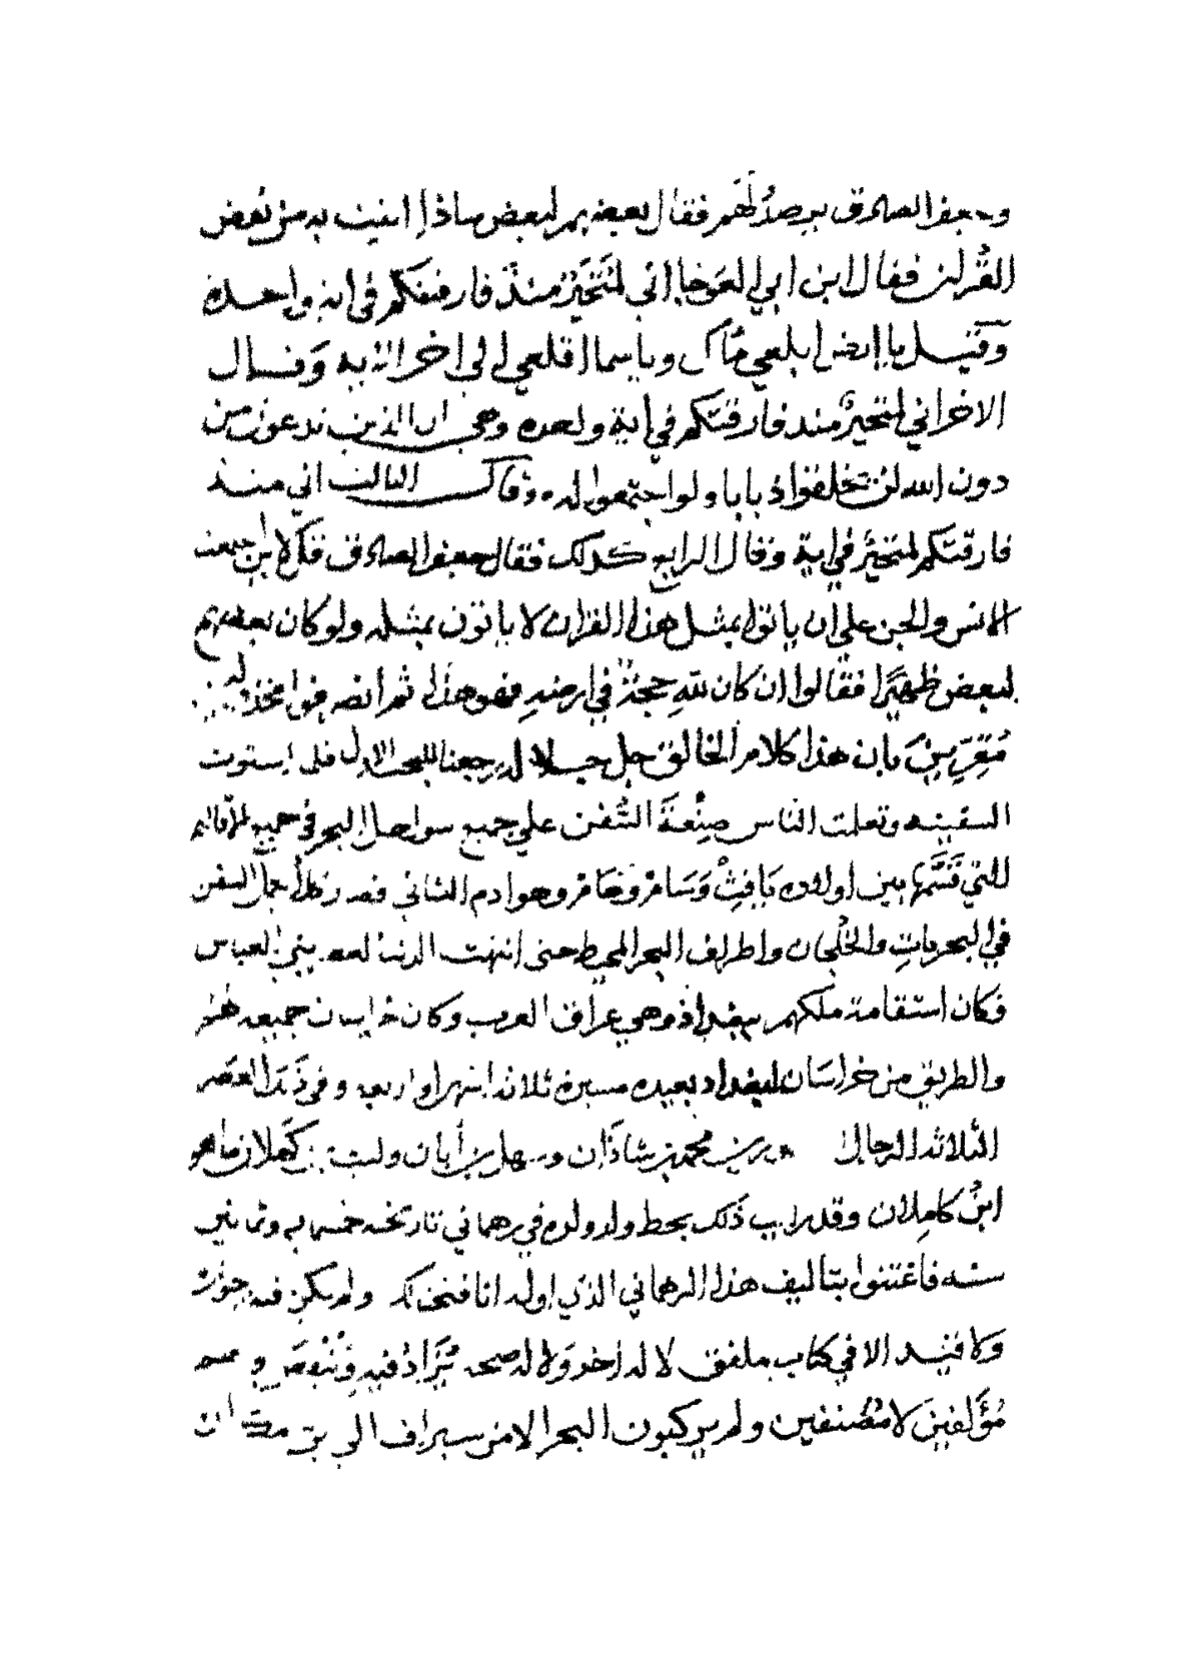 وجعفر الصادق يرصد لهم فقال بعضهم لبعض ماذا اتيت به من بعض
القرآن فقال ابن ابي العوجا اني لمتحير منذ فارقتكم في اية واحده
وقيل يا ارض ابلعي ماك وياسما اقلعي الى اخر الايه وقال
الاخر اني لمتحير منذ فارقتكم في اية واحده وهي ان الذين تدعون من
دون الله لن يخلقوا ذبابا ولو اجتمعوا له وقال الثالث اني منذ
فارقتكم لمتحير في اية وقال الرابع كذلك فقال جعفر الصادق قل لاين اجتمعت
الانس والجن على ان ياتوا بمثل هذا القران لا ياتون بمثله ولو كان بعضهم
لبعض ظهيرا فقالوا ان كان لله حجة في ارضه فهو هذا ثم انصرفوا
مقرين بان هذا كلام الخالق جل جلاله رجعنا للبحث الاول فلما استوت
السفينه وتعلمت الناس صنعة السفن على جميع سواحل البحر في جميع الاقاليم
التي قسمها بين اولاده يافث وسام وحام وهو ادم الثاني فصار كلا عمل السفن
في البحريات والخلجان واطراف البحر المحيط حتى انتهت الدنيا لعصر بني العباس
فكان استقامة ملكهم ببغداذ وهي عراق العرب وكان خراسان جميعه لهم
والطريق من خراسان لبغداد بعيده مسيرة ثلاثة اشهر او اربعه وفي ذلك العصر
الثلاثه الرجال محمد بن شاذان وسهل بن أبان وليث بن كهلان ما هو
ابن كاملان وقد رايت ذلك بخط ولد ولده في رهماني تاريخه خمسمايه وثمانين
سنه فاعتنوا بتاليف هذا الرهماني الذي اوله انا فتحنا لك ولم يكن فيه
ولا قيد الا في كتاب ملفق لا له اخر ولا له صحه يزاد فيه وينقص وهم
مؤلفين لا مصنفين ولم يركبون البحر الا من سيراف الى بر مكران